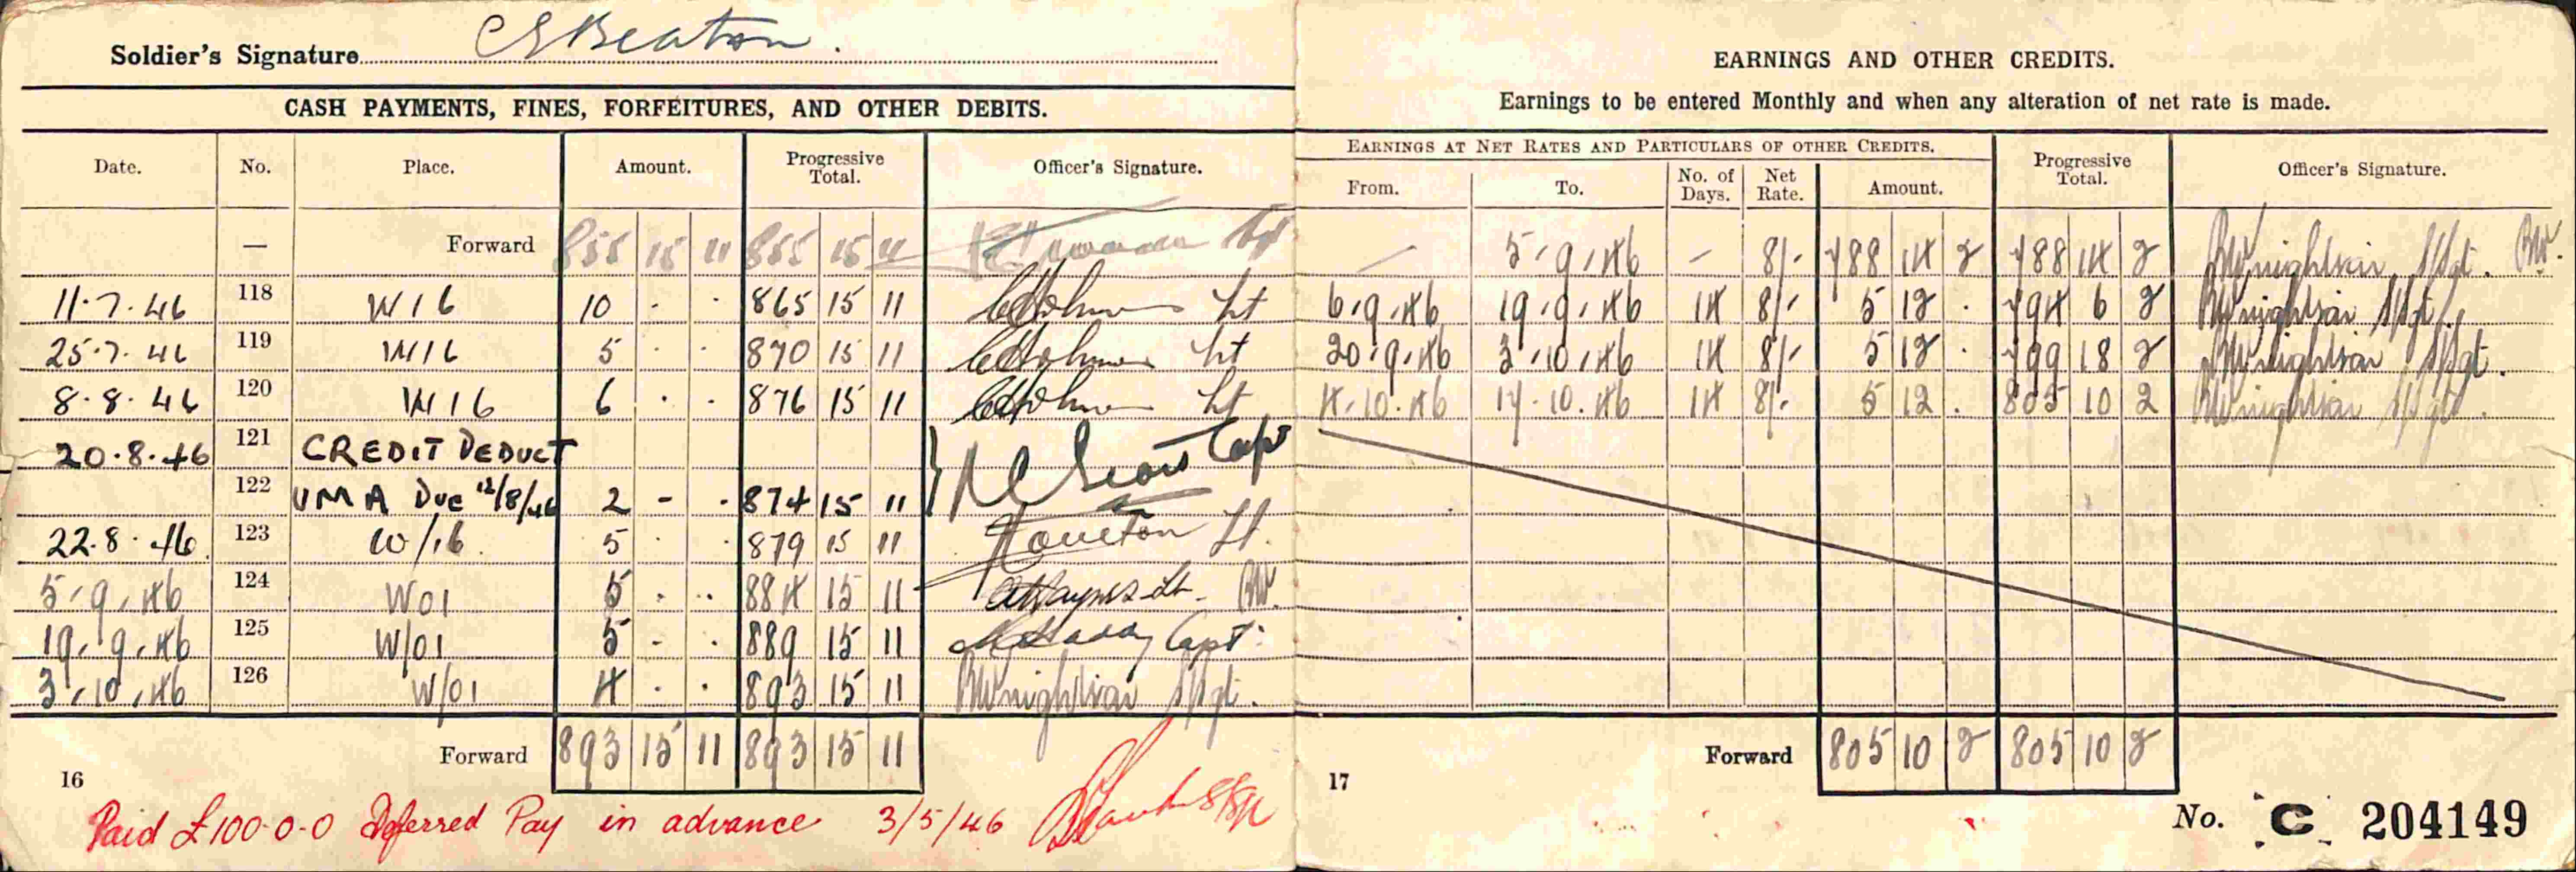 Soldier's Signature CSBeaton.
CASH PAYMENTS, FINES, FORFEITURES, AND OTHER DEBITS.
Date. No. Place. Amount. Progressive Total. Officer's Signature.
— Forward 855 15 11 855 15 11
11.7.46 118 W16 10 - - 865 15 11 Lt
25.7.46 119 W16 5 - - 870 15 11 Lt
8.8.46 120 W16 6 - - 876 15 11 Lt
20.8.46 121 CREDIT DEDUCT Capt
122 UMA Due 12/8/46 2 - - 874 15 11
22.8.46 123 W/16. 5 - - 879 15 11 Lt.
5.9.46 124 W01 5 - - 884 15 11 Lt. BW.
19.9.46 125 W/01 5 - - 889 15 11 Capt.
3.10.46 126 W/01 4 - - 893 15 11 S/Sgt.
Forward 893 15 11 893 15 11
16
Paid £100-0-0 Deferred Pay in advance 3/5/46
EARNINGS AND OTHER CREDITS.
Earnings to be entered Monthly and when any alteration of net rate is made.
EARNINGS AT NET RATES AND PARTICULARS OF OTHER CREDITS. Progressive Total. Officer's Signature.
From. To. No. of Days. Net Rate. Amount.
— 5.9.46 — 8/- 788 14 2 788 14 2 S/Sgt. BW.
6.9.46 19.9.46 14 8/- 5 12 . 794 6 2 S/Sgt.
20.9.46 3.10.46 14 8/- 5 12 . 799 18 2 S/Sgt.
4.10.46 17.10.46 14 8/- 5 12 . 805 10 2 S/Sgt.
Forward 805 10 2 805 10 2
17
No. C 204149